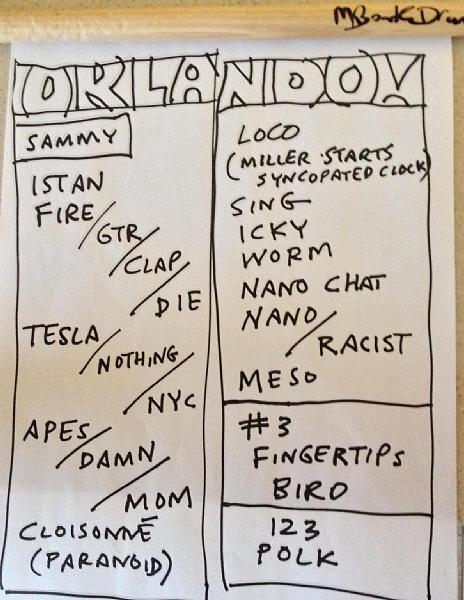 ORLANDO!
SAMMY
ISTAN
FIRE/
GTR/
CLAP/
DIE
TESLA/
NOTHING/
NYC
APES/
DAMN/
MOM
CLOISONNÉ
(PARANOID)
LOCO
(MILLER STARTS
SYNCOPATED CLOCK)
SING
ICKY
WORM
NANO CHAT
NANO/
RACIST
MESO
#3
FINGERTIPS
BIRD
123
POLK